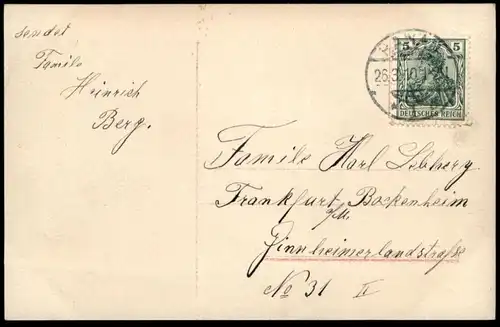 sendet
Familie
Heinrich
Berg.
5 5
26.3.10.
DEUTSCHES REICH
Familie Karl Lebherg
Frankfurt Bockenheim
a/M.
Ginnheimerlandstraße
No 31 II